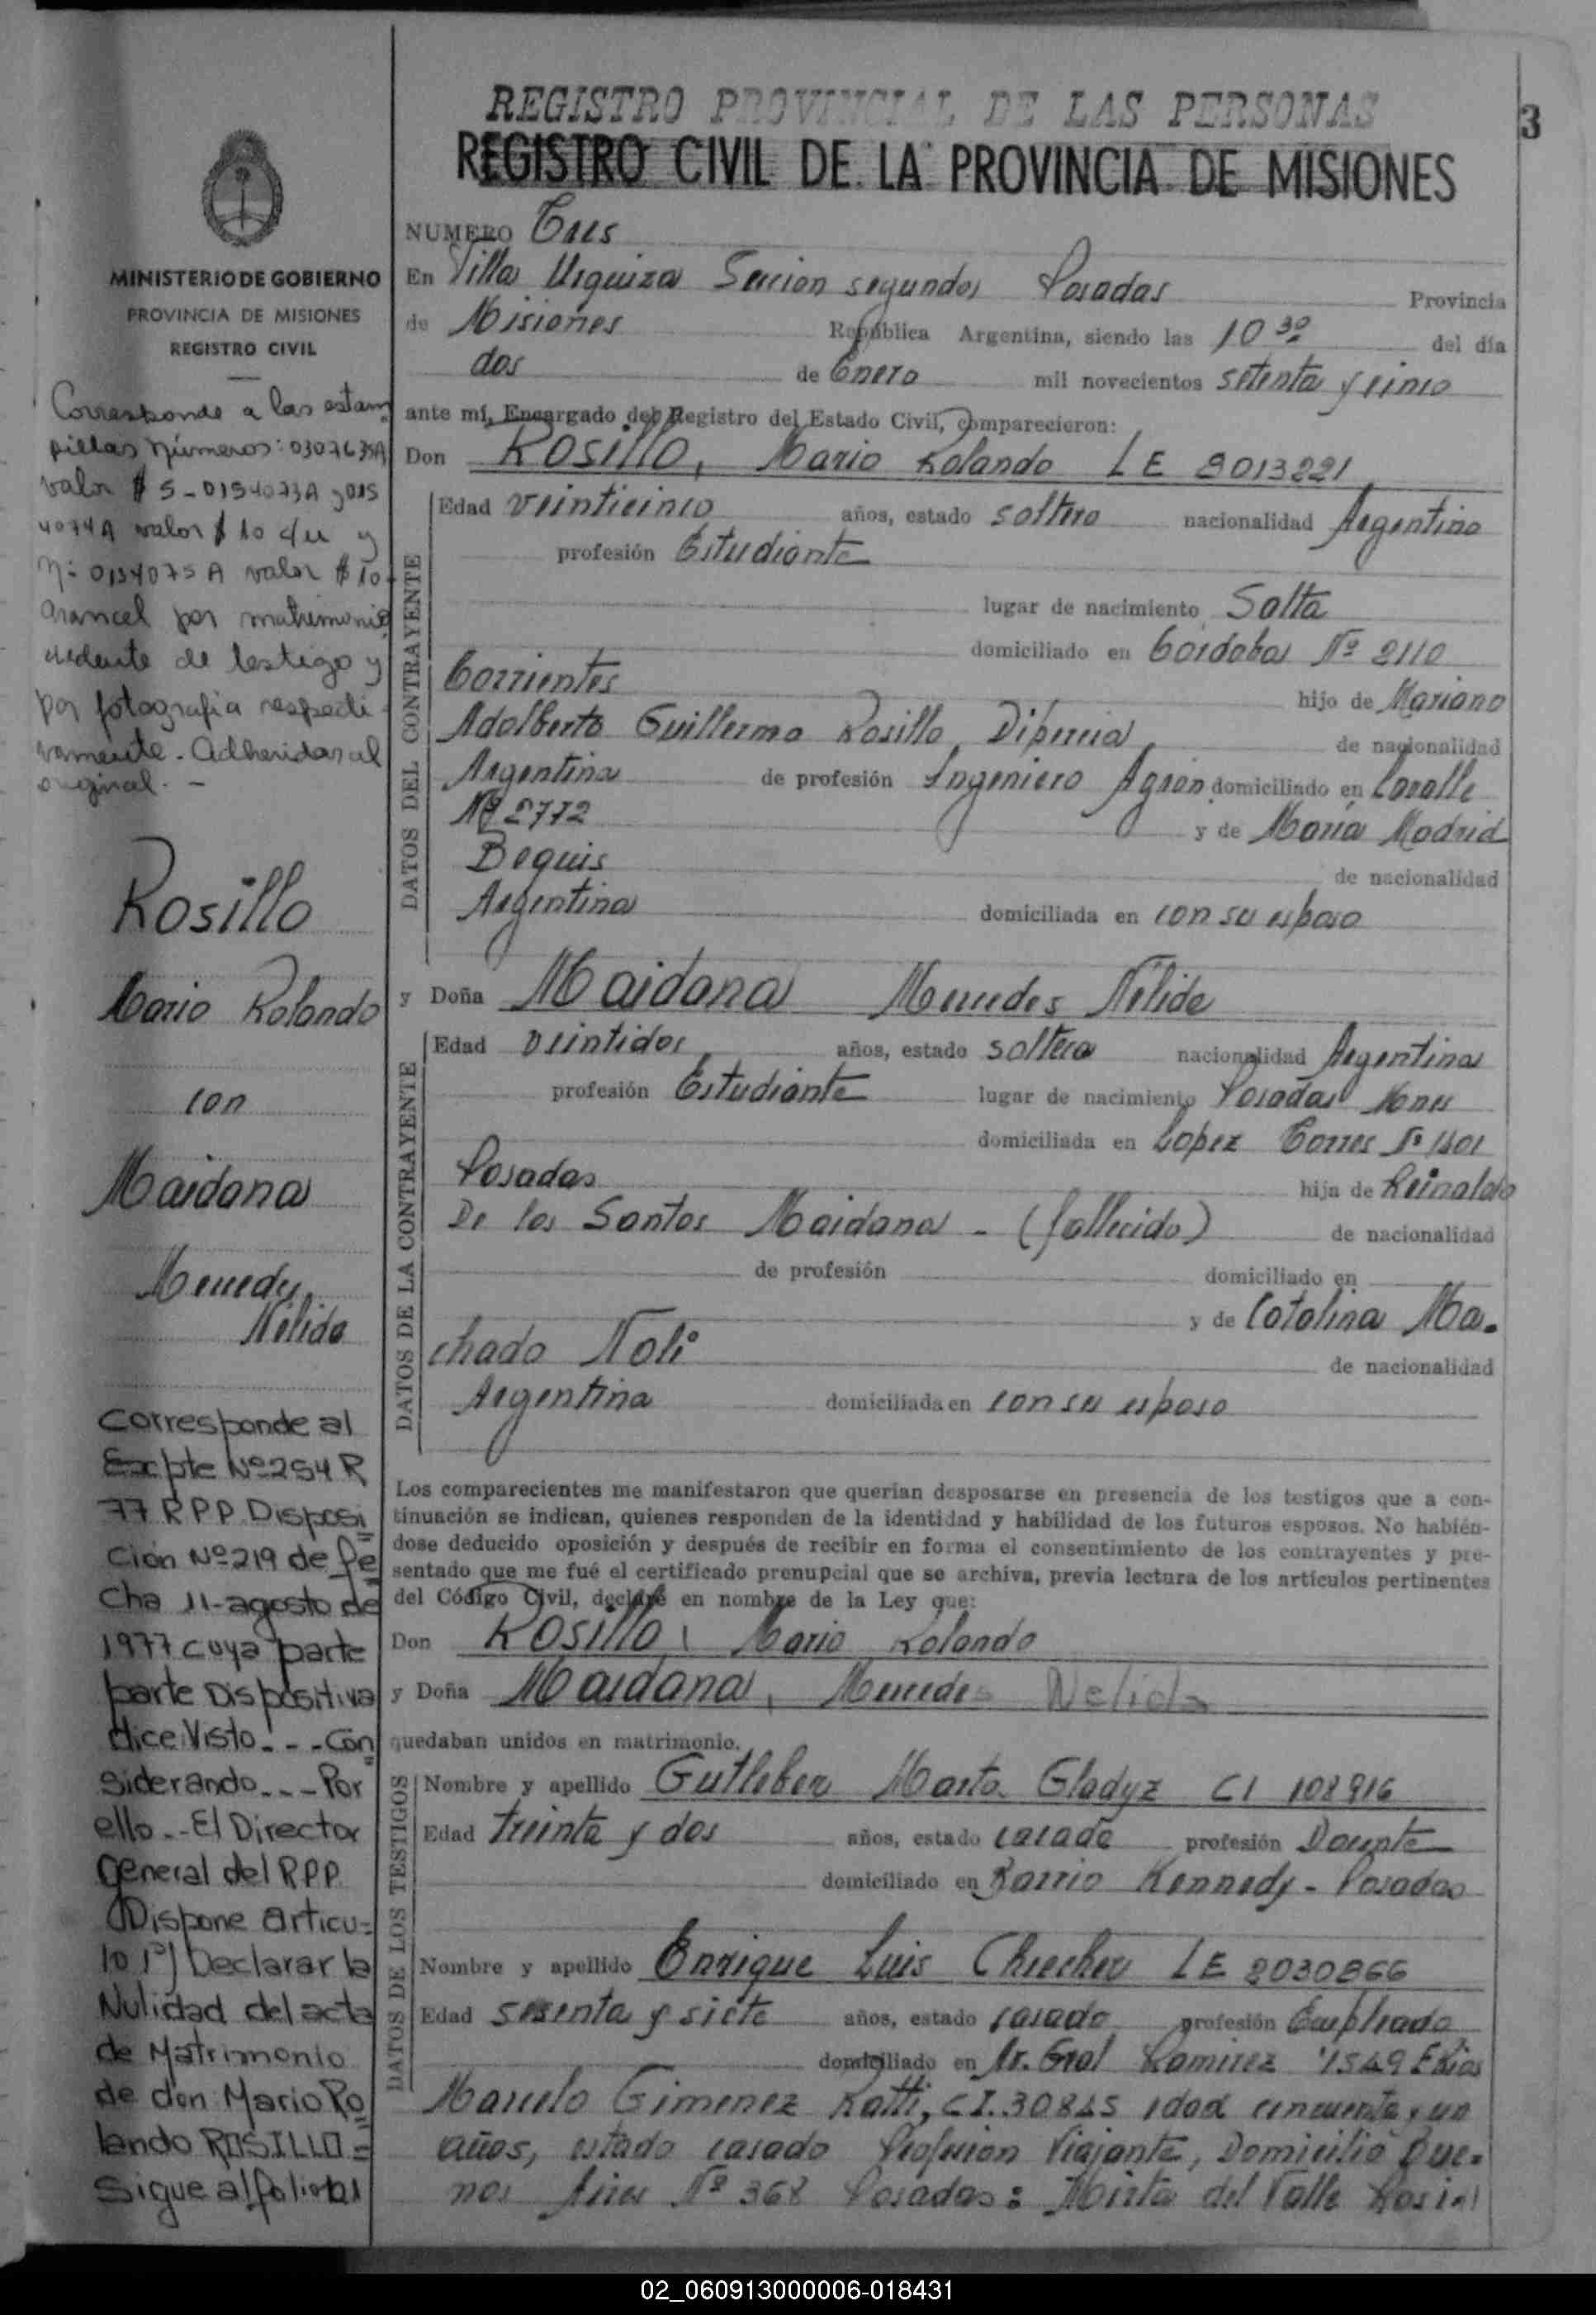 REGISTRO PROVINCIAL DE LAS PERSONAS
3
REGISTRO CIVIL DE LA PROVINCIA DE MISIONES
MINISTERIO DE GOBIERNO
PROVINCIA DE MISIONES
REGISTRO CIVIL
Corresponde a las estam
pillas números: 0307635A
valor $ 5-0154073A y 015
4074A valor $ 10 c/u y
Nº 0154075A valor $ 10
arancel por matrimonio
de testigo y
por fotografia respecti
vamente. Adheridas al
original. -
Rosillo
Mario Rolando
con
Maidana
Mercedes
Nélida
Corresponde al
Expte Nº 254 R
77 RPP Disposi
ción Nº 219 de fe
cha 11-agosto de
1977 cuya parte
parte Dispositiva
dice: Visto - - - Con
siderando - - - Por
ello - - El Director
General del RPP
Dispone Articu=
lo 1º) Declarar la
Nulidad del acta
de Matrimonio
de don Mario Ro
lando ROSILLO =
Sigue al folio
NUMERO Tres
En Villa Urquiza Seccion segunda Posadas Provincia
de Misiones República Argentina, siendo las 10 30 del día
dos de Enero mil novecientos setenta y cinco
ante mí, Encargado del Registro del Estado Civil, comparecieron:
Don Rosillo, Mario Rolando LE 8013221
DATOS DEL CONTRAYENTE
Edad veinticinco años, estado soltero nacionalidad Argentino
profesión Estudiante
lugar de nacimiento Salta
domiciliado en Córdoba Nº 2110
Corrientes hijo de Mariano
Adalberto Guillermo Rosillo de nacionalidad
Argentina de profesión Ingeniero Agrón. domiciliado en Lavalle
Nº 2772 y de María Madrid
Beguis de nacionalidad
Argentina domiciliada en con su esposo
y Doña Maidana Mercedes Nélida
DATOS DE LA CONTRAYENTE
Edad veintidos años, estado soltera nacionalidad Argentina
profesión Estudiante lugar de nacimiento Posadas Mnes
domiciliada en Lopez Torres Nº 1401
Posadas hija de Reinaldo
De los Santos Maidana - (fallecido) de nacionalidad
de profesión domiciliado en
y de Catalina Ma-
chado Noli de nacionalidad
Argentina domiciliada en con su esposo
Los comparecientes me manifestaron que querían desposarse en presencia de los testigos que a con-
tinuación se indican, quienes responden de la identidad y habilidad de los futuros esposos. No habién-
dose deducido oposición y después de recibir en forma el consentimiento de los contrayentes y pre-
sentado que me fué el certificado prenupcial que se archiva, previa lectura de los artículos pertinentes
del Código Civil, declaré en nombre de la Ley que:
Don Rosillo, Mario Rolando
y Doña Maidana, Mercedes Nelida
quedaban unidos en matrimonio.
DATOS DE LOS TESTIGOS
Nombre y apellido Gutleber Marta Gladyz CI 108916
Edad treinta y dos años, estado casada profesión Docente
domiciliado en Barrio Kennedy - Posadas
Nombre y apellido Enrique Luis LE 2030866
Edad sesenta y siete años, estado casado profesión Empleado
domiciliado en Av. Gral Ramirez 1549 E Rios
Marcelo Gimenez Ratti, C.I. 30845 edad cincuenta y un
años, estado casado Profesion Viajante, Domicilio Bue-
nos Aires Nº 368 Posadas: Mirta del Valle
02_060913000006-018431